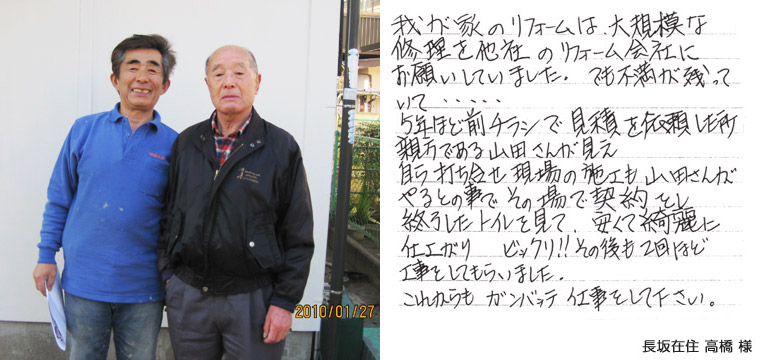 2010/01/27
我が家のリフォームは、大規模な
修理を他社のリフォーム会社に
お願いしていました。でも不満が残って
いて・・・・・
5年ほど前チラシで見積を依頼した所
親方である山田さんが見え
自ら打ち合せ現場の施工も山田さんが
やるとの事でその場で契約をし
終了したトイレを見て、安くて綺麗に
仕上がり ビックリ!!その後も2回ほど
工事をしてもらいました。
これからも ガンバッテ仕事をして下さい。
長坂在住 高橋 様